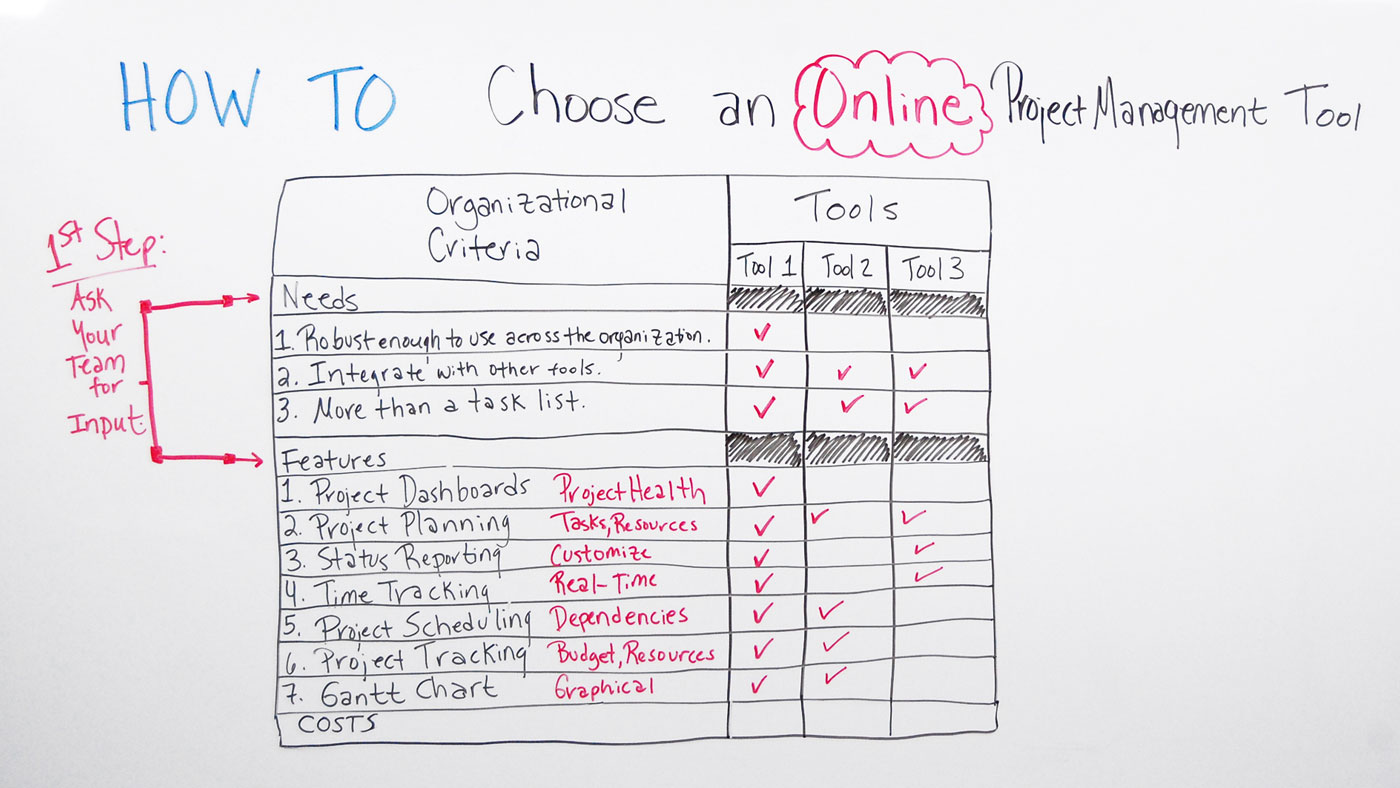 HOW TO Choose an Online Project Management Tool
1st Step:
Ask
Your
Team
for
Input
Organizational
Criteria
Tools
Tool 1 Tool 2 Tool 3
Needs
1. Robust enough to use across the organization. ✓
2. Integrate with other tools. ✓ ✓ ✓
3. More than a task list. ✓ ✓ ✓
Features
1. Project Dashboards Project Health ✓
2. Project Planning Tasks, Resources ✓ ✓ ✓
3. Status Reporting Customize ✓ ✓
4. Time Tracking Real-Time ✓ ✓
5. Project Scheduling Dependencies ✓ ✓
6. Project Tracking Budget, Resources ✓ ✓
7. Gantt Chart Graphical ✓ ✓
COSTS